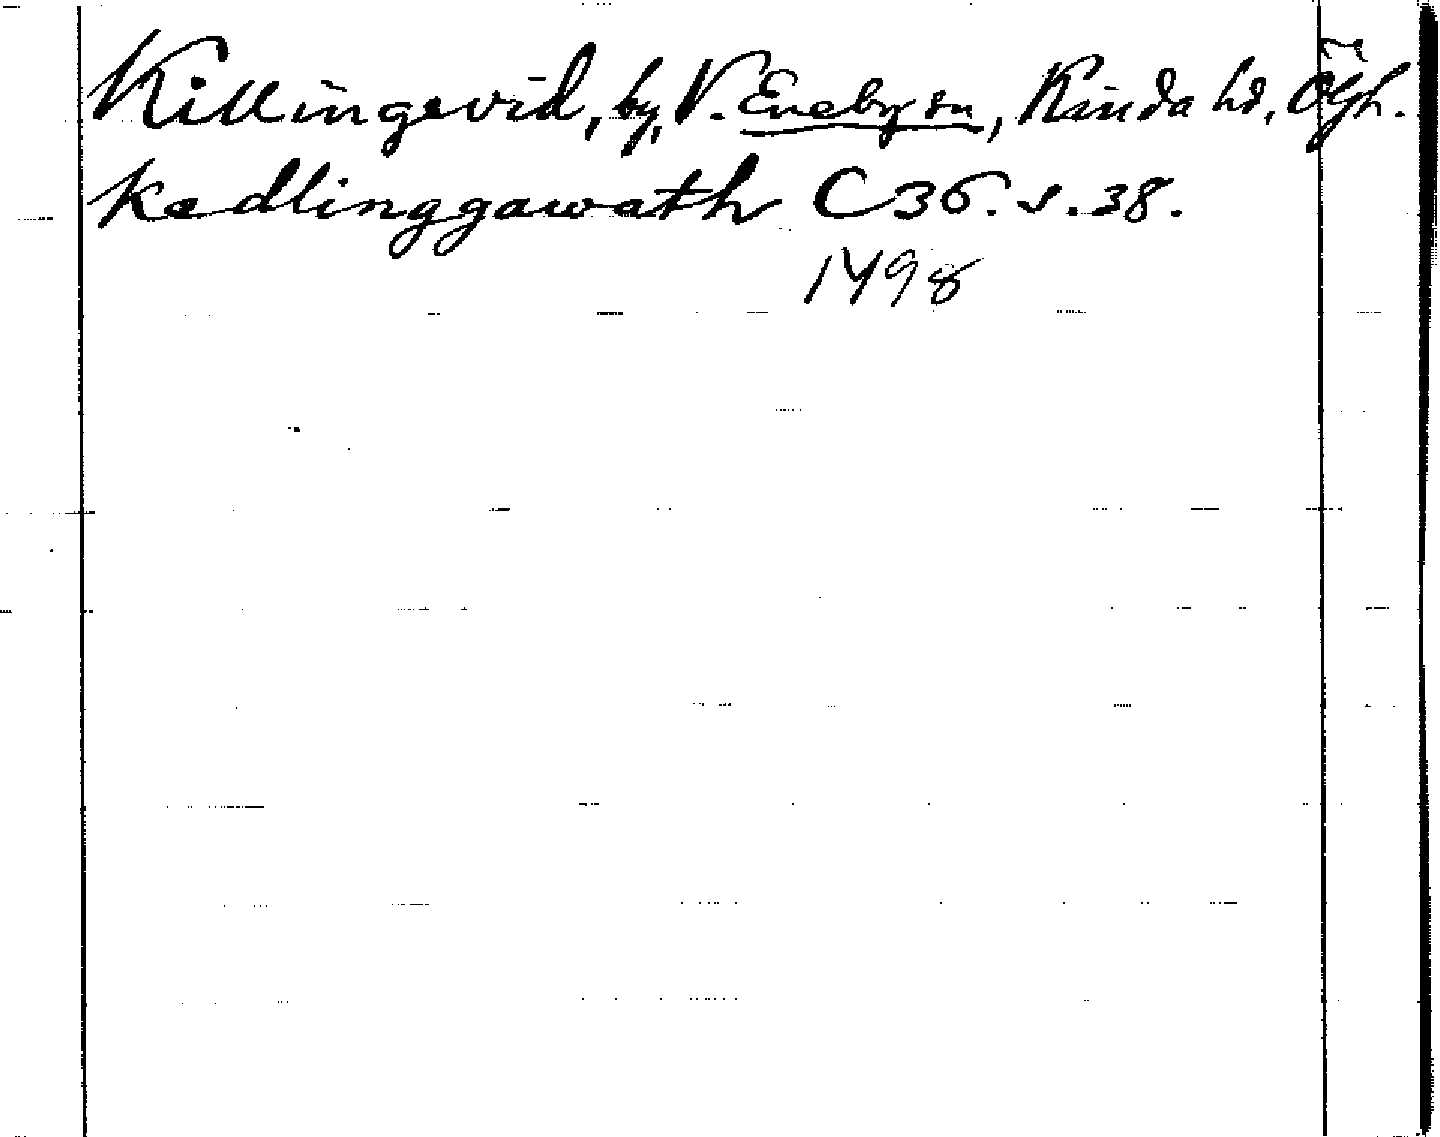 Killingevid, by, V. Eneby sn, Kinda hd, Ögh.
kedlinggawath C 36. s. 38.
1498